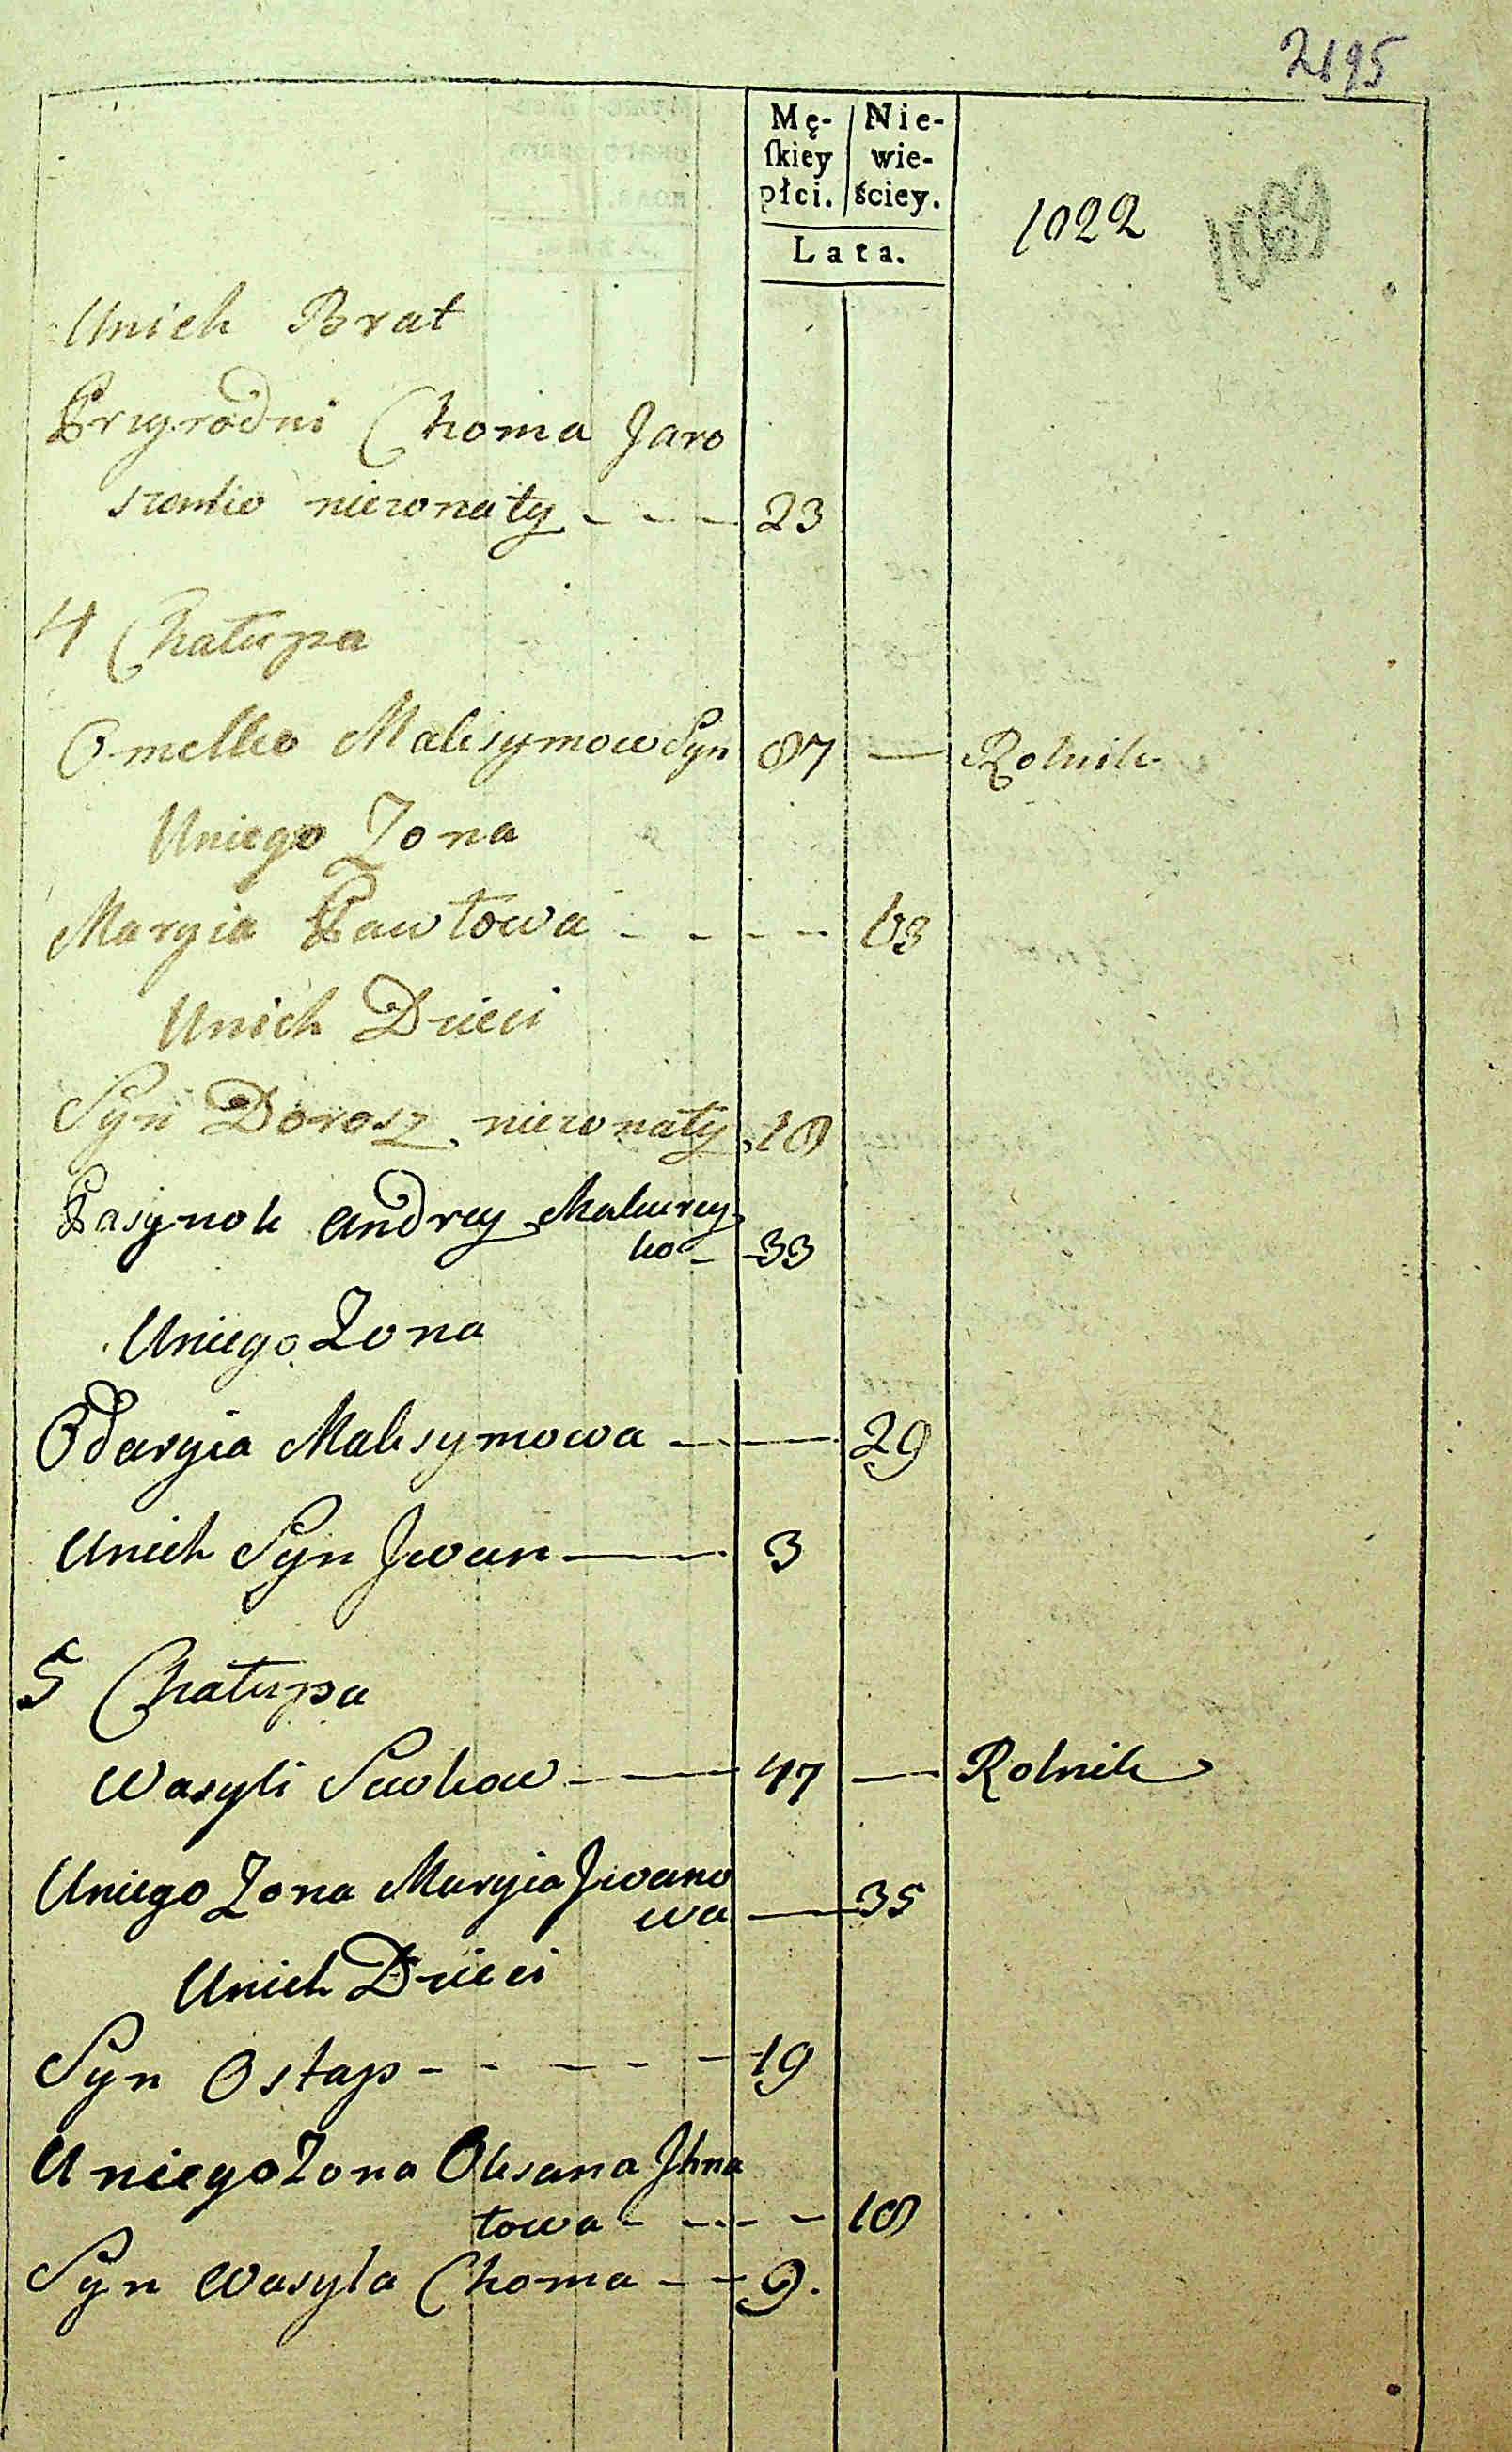 2195
Mę-
ſkiey
płci.
Nie-
wie-
ściey.
Lata.
1022
Unich Brat
Prygrodni Choma Jaro
szenko niezonaty - - - 23
4 Chałupa
Omelko Maksymow Syn 87 — Rolnik
Uniego Zona
Maryia Pawłowa - - - - 63
Unich Dzieci
Syn Dorosz niezonaty 18
Pasynok Andrey
ko - 33
Uniego Zona
Odaryia Maksymowa — 29
Unich Syn Jwan — 3
5 Chałupa
Wasyli — 47 — Rolnik
Uniego Zona Maryia Jwano
wa — 35
Unich Dzieci
Syn Ostap - - - - - 19
Uniego Zona Oksana Jhna
towa - - - - 18
Syn Wasyla Choma - - 9.